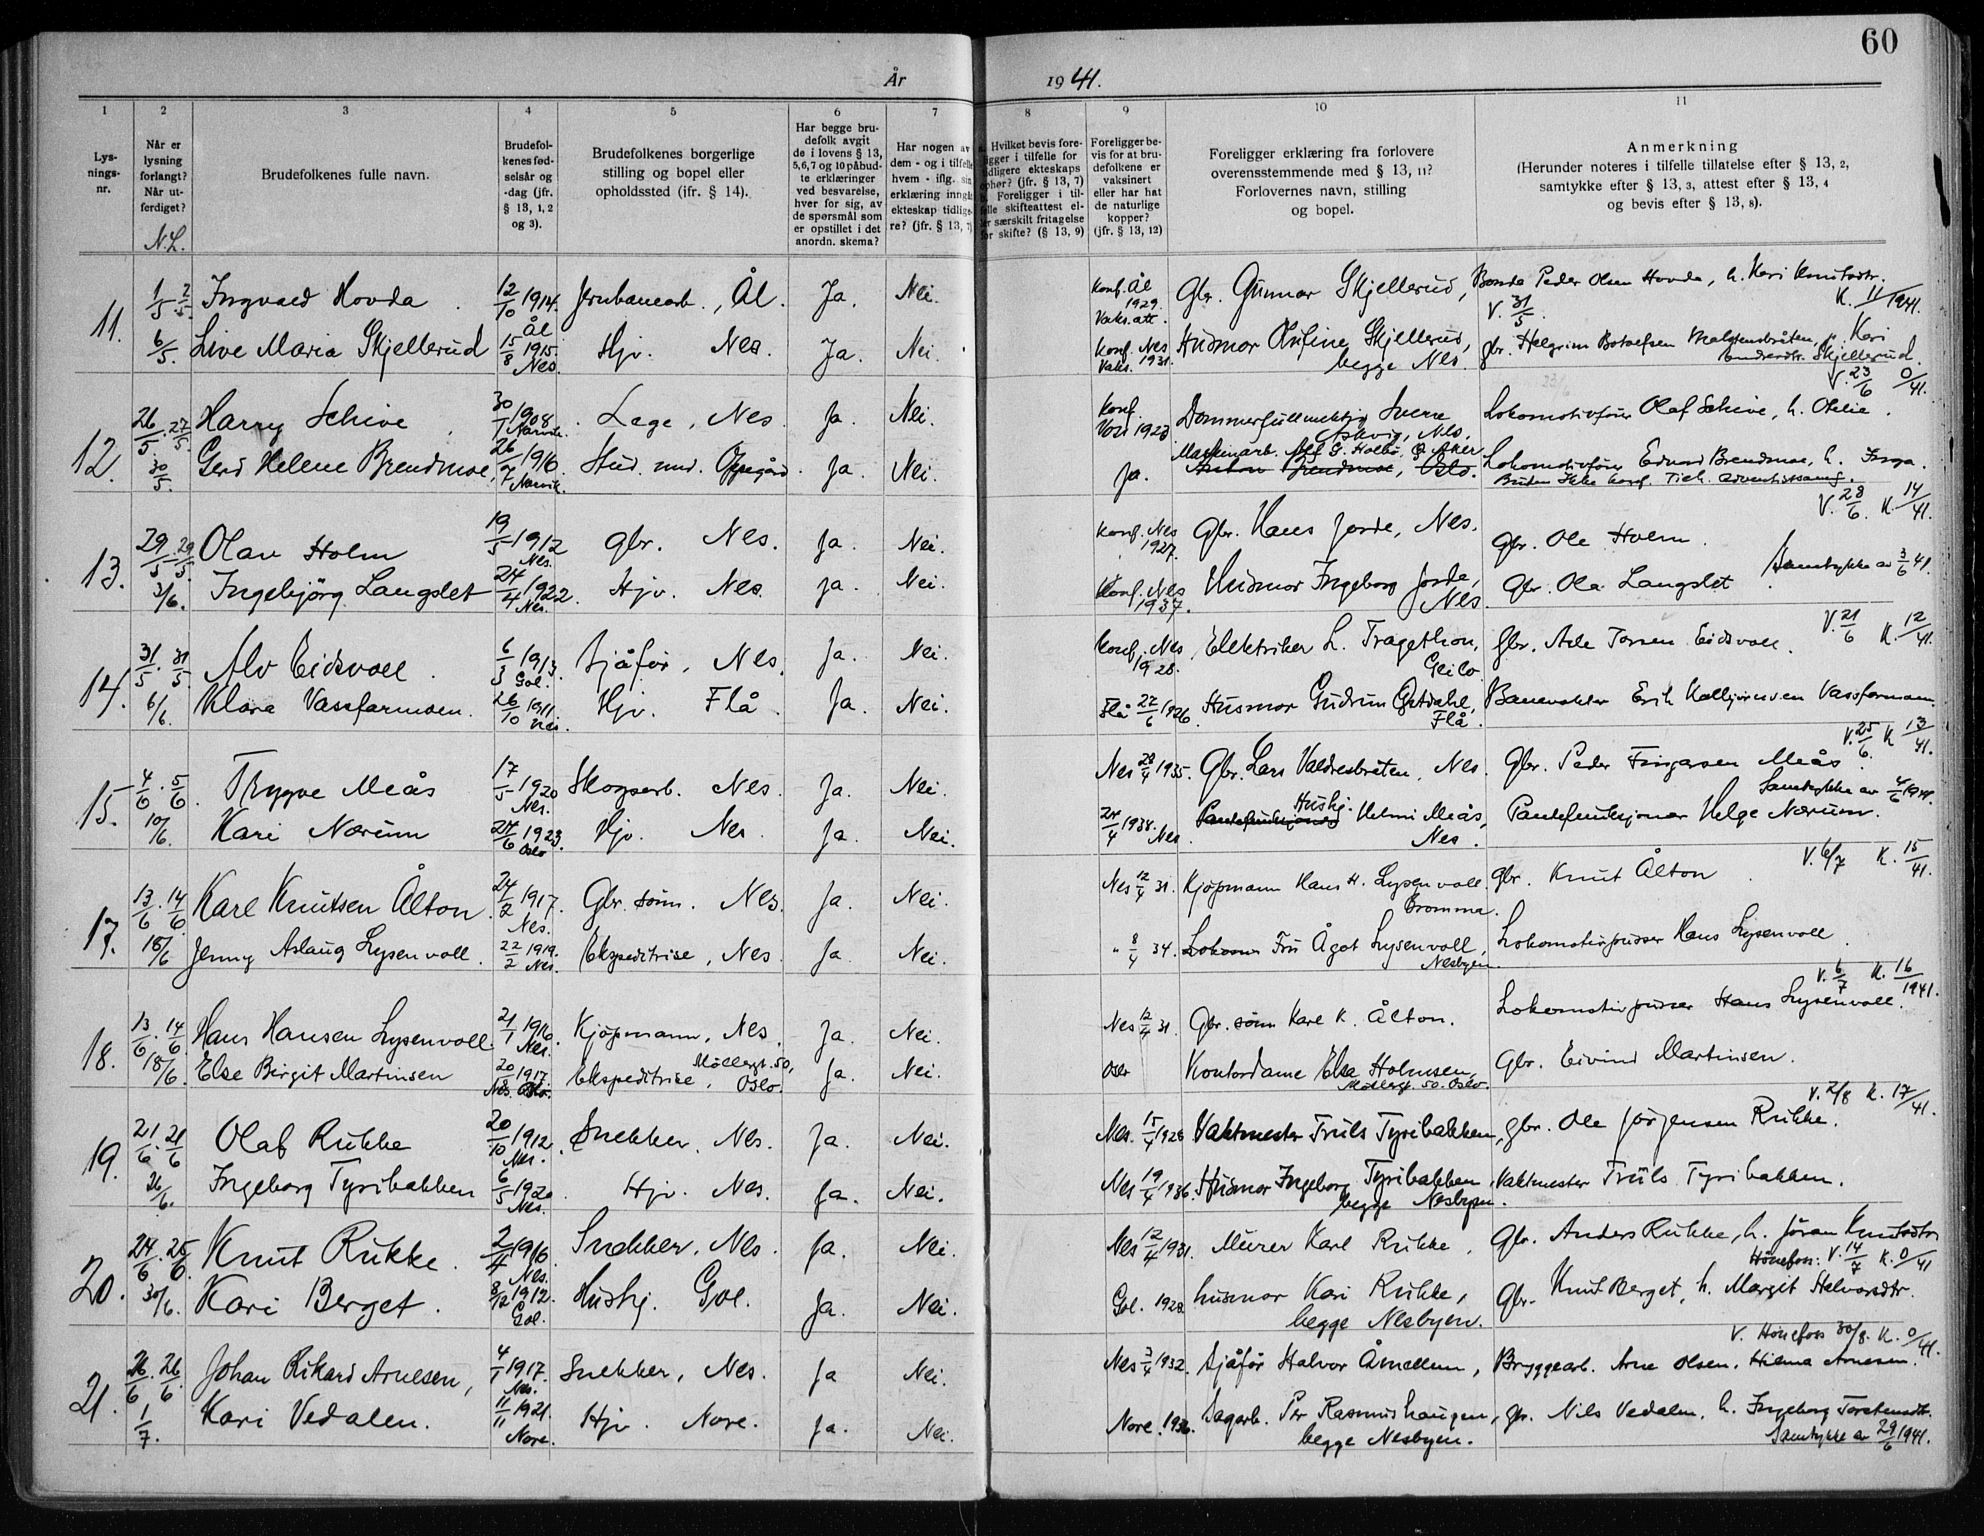 60
År 1941.
1 2 3 4 5 6 7 8 9 10 11
Lys-
nings-
nr.
Når er
lysning
forlangt?
Når ut-
ferdiget?
N.L.
Brudefolkenes fulle navn.
Brudefol-
kenes fød-
selsår og
-dag (jfr.
§ 13, 1, 2
og 3).
Brudefolkenes borgerlige
stilling og bopel eller
opholdssted (ifr. § 14).
Har begge bru-
defolk avgit
de i lovens § 13,
5,6,7 og 10 påbud-
te erklæringer
ved besvarelse,
hver for sig, av
de spørsmål som
er opstillet i det
anordn. skema?
Har nogen av
dem - og i tilfelle
hvem - iflg. sin
erklæring inngåt
ekteskap tidlige-
re? (jfr. § 13, 7)
Hvilket bevis fore-
ligger i tilfelle for
tidligere ekteskaps
ophør? (jfr. § 13, 7)
Foreligger i til-
felle skifteattest el-
ler særskilt fritagelse
for skifte? (§ 13, 9)
Foreligger be-
vis for at bru-
defolkene er
vaksinert
eller har hat
de naturlige
kopper?
(jfr. § 13, 12)
Foreligger erklæring fra forlovere
overensstemmende med § 13, 11?
Forlovernes navn, stilling
og bopel.
Anmerkning
(Herunder noteres i tilfelle tillatelse efter § 13, 2,
samtykke efter § 13, 3, attest efter § 13, 4
og bevis efter § 13, 8).
11. 1/5 2/5. Ingvald Hovda. 12/10 1914. Ål Jernbanearb., Ål. Ja. Nei. Konf. Ål 1929. Vaks. att. Gbr. Gunnar Skjellerud, Bonde Peder Olsen Hovda, h. Kari Knutsdtr.
V. 31/5. K. 11/1941.
6/5 Live Maria Skjellerud 15/8 1915. Nes. Hjv. Nes. Ja. Nei. Konf. Nes 1931. Vaks. Husmor Olufine Skjellerud, begge Nes. gbr. Helgrim Botolfsen Kari
Skjellerud.
V. 23/6 0/41.
12. 26/5. 27/5. Harry Schive, 30/1 1908. Narvik. Lege, Nes. Ja. Nei. Konf. 1923 Dommerfullmektig Sverre Nes. Lokomotivfører Olaf Schive, h. Otelie.
30/5. Gerd Helene Brendmoe, 26/7 1916. Narvik. Stud. med. Oppegård. Ja. Nei. Ja. Maskinarb. Alf G. Holbø, Ø. Aker Anton Brendmoe, Oslo. Lokomotivfører Edvard Brendmoe, h. Inga.
Bruden ikke konf. Tilh. adventistsamf.
V. 28/6. K. 14/41.
13. 29/5. 29/5. Olav Holm 19/5 1912 Nes. gbr. Nes. Ja. Nei. Konf. Nes 1927. Gbr. Hans Jorde, Nes. Gbr. Ole Holm.
3/6. Ingebjörg Langslet 24/4 1922. Nes. Hjv. Nes. Ja. Nei. Konf. Nes 1937. Husmor Ingeborg Jorde, Nes. Gbr. Ola Langslet. Samtykke av 3/6 41.
V. 21/6 K. 12/41.
14. 31/5. 31/5. Alv Eidsvoll. 6/3 1913. Gol. Sjåfør, Nes. Ja. Nei. Konf. Nes 1928. Elektriker L. Tragethon, Geilo. Gbr. Asle Torsen Eidsvoll.
6/6. Klara Vassfarmoen. 26/10 1911 Nes. Hjv. Flå. Ja. Nei. Flå 22/6 1926. Husmor Gudrun Flå. Banevokter Erik Vassfarmoen
V. 25/6. K 13/41.
15. 4/6. 5/6. Trygve Meås 17/5 1920 Nes. Skogsarb. Nes. Ja. Nei. Nes 28/4 1935. Gbr. Lars Valdresbråten, Nes. Gbr. Peder Fingarsen Meås.
Samtykke av 4/6 1941.
10/6. Kari Nærum 24/6 1923. Oslo Hjv. Nes. Ja. Nei. 24/4 1938. Nes. Hushj. Helmi Meås, Nes. Pantefunksjonær Helge Nærum.
V. 6/7 K. 15/41.
17. 13/6. 14/6. Karl Knutsen Ålton 24/2 1917. Nes. Gbr. sønn. Nes. Ja. Nei. Nes 12/4 31. Kjøpmann Hans H. Lysenvoll Bromma. gbr. Knut Ålton
18/6 Jenny Aslaug Lysenvoll. 22/2 1919. Nes. Ekspeditrise, Nes. Ja. Nei. " 8/4 34. Fru Ågot Lysenvoll, Nesbyen. Lokomotivpusser Hans Lysenvoll.
V. 6/7 K. 16/1941.
18. 13/6. 14/6. Hans Hansen Lysenvoll. 21/1 1916. Nes. Kjøpmann, Nes. Ja. Nei. Nes 12/4 31. Gbr. sønn Karl K. Ålton. Lokomotivpusser Hans Lysenvoll.
18/6. Else Birgit Martinsen 20/8 1917. Nes. Oslo. Ekspeditrise, Møllergt. 50, Oslo. Ja. Nei. Oslo Kontordame Elsa Holmsen, Møllergt. 50. Oslo. Gbr. Eivind Martinsen.
V. 2/8 K. 17/41.
19. 21/6. 21/6 Olaf Rukke 20/10 1912. Nes. Snekker, Nes. Ja. Nei. Nes. 15/4 1928 Vaktmester Truls Tyribakken, gbr. Ole Jörgensen Rukke.
26/6. Ingeborg Tyribakken 6/5 1920. Nes. Hjv. Nes. Ja. Nei. Nes 19/4 1936. Husmor Ingeborg Tyribakken, begge Nesbyen. Vaktmester Truls Tyribakken.
20. 24/6. 25/6. Knut Rukke. 2/4 1916. Nes. Snekker, Nes. Ja. Nei. Nes 12/4 1931. Murer Karl Rukke, Gbr. Anders Rukke, h. Jöran Knutsdtr
Hønefoss: V. 14/7 K. 0/41
30/6. Kari Berget. 8/12 1912. Gol. Hushj. Gol. Ja. Nei. Gol. 1928. husmor Kari Rukke, begge Nesbyen. Gbr. Knut Berget, h. Margit Halvorsdtr.
V. Hønefoss 30/8. K. 0/41.
21. 26/6 26/6. Johan Rikard Arnesen, 4/1 1917. Nes. Snekker, Nes. Ja Nei. Nes 3/4 1932. Sjåfør Halvor Bryggearb. Arne Olsen. Hilma Arnesen.
1/7. Kari Vedalen. 11/11 1921. Nore. Hjv. Nore. Ja. Nei. Nore. 1936. Sagarb. Per Rasmushaugen, begge Nesbyen. gbr. Nils Vedalen, h. Ingeborg Torstensdtr.
Samtykke av 29/6 1941.